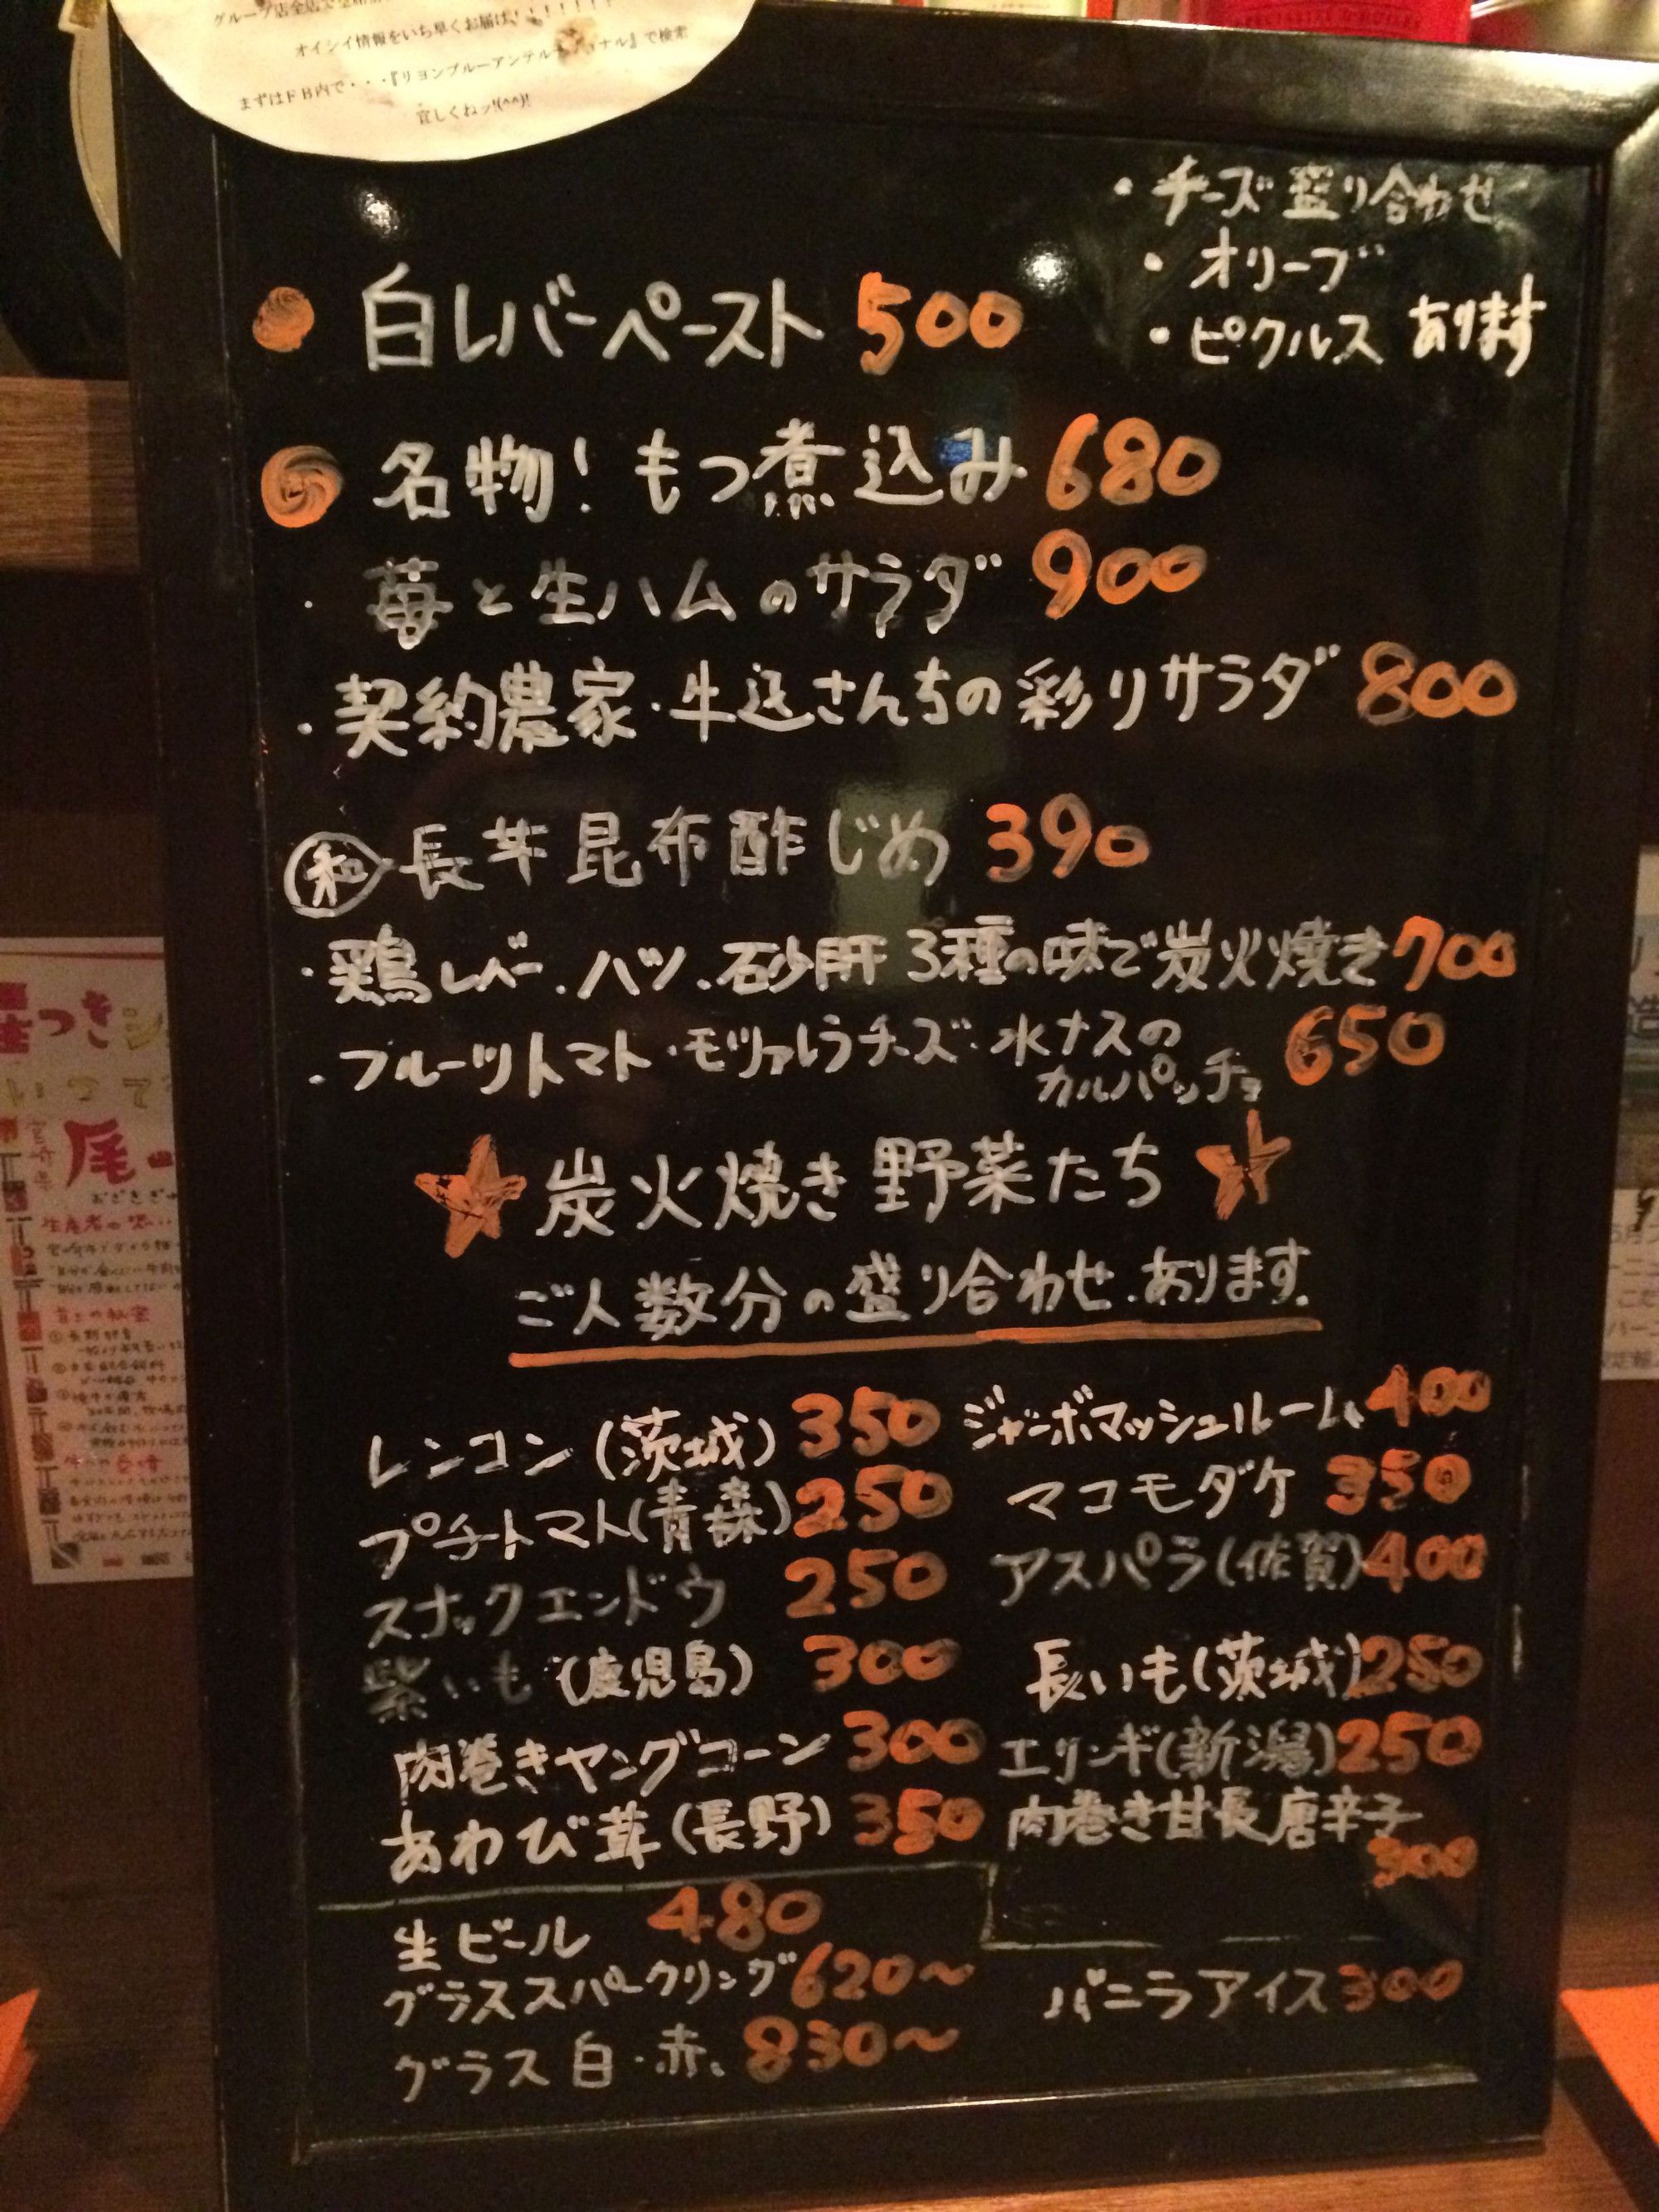 オイシイ情報をいち早くお届け!!!!!!!
まずはFB内で・・・『リヨンブルーアンテルナショナル』で検索
宜しくねッ!(^^)!
・チーズ盛り合わせ
・オリーブ
・ピクルス あります
白レバーペースト 500
名物! もつ煮込み 680
・苺と生ハムのサラダ 900
・契約農家・牛込さんちの彩りサラダ 800
和 長芋昆布酢じめ 390
・鶏レバー、ハツ、砂肝 3種の味で炭火焼き 700
・フルーツトマト・モッツァレラチーズ・水ナスの
カルパッチョ 650
炭火焼き野菜たち
ご人数分の盛り合わせ、あります。
レンコン(茨城) 350 ジャンボマッシュルーム 400
プチトマト(青森) 250 マコモダケ 350
スナックエンドウ 250 アスパラ(佐賀) 400
紫いも(鹿児島) 300 長いも(茨城) 250
肉巻きヤングコーン 300 エリンギ(新潟) 250
あわび茸(長野) 350 肉巻き甘長唐辛子
300
生ビール 480
グラススパークリング 620〜 バニラアイス 300
グラス白・赤、830〜